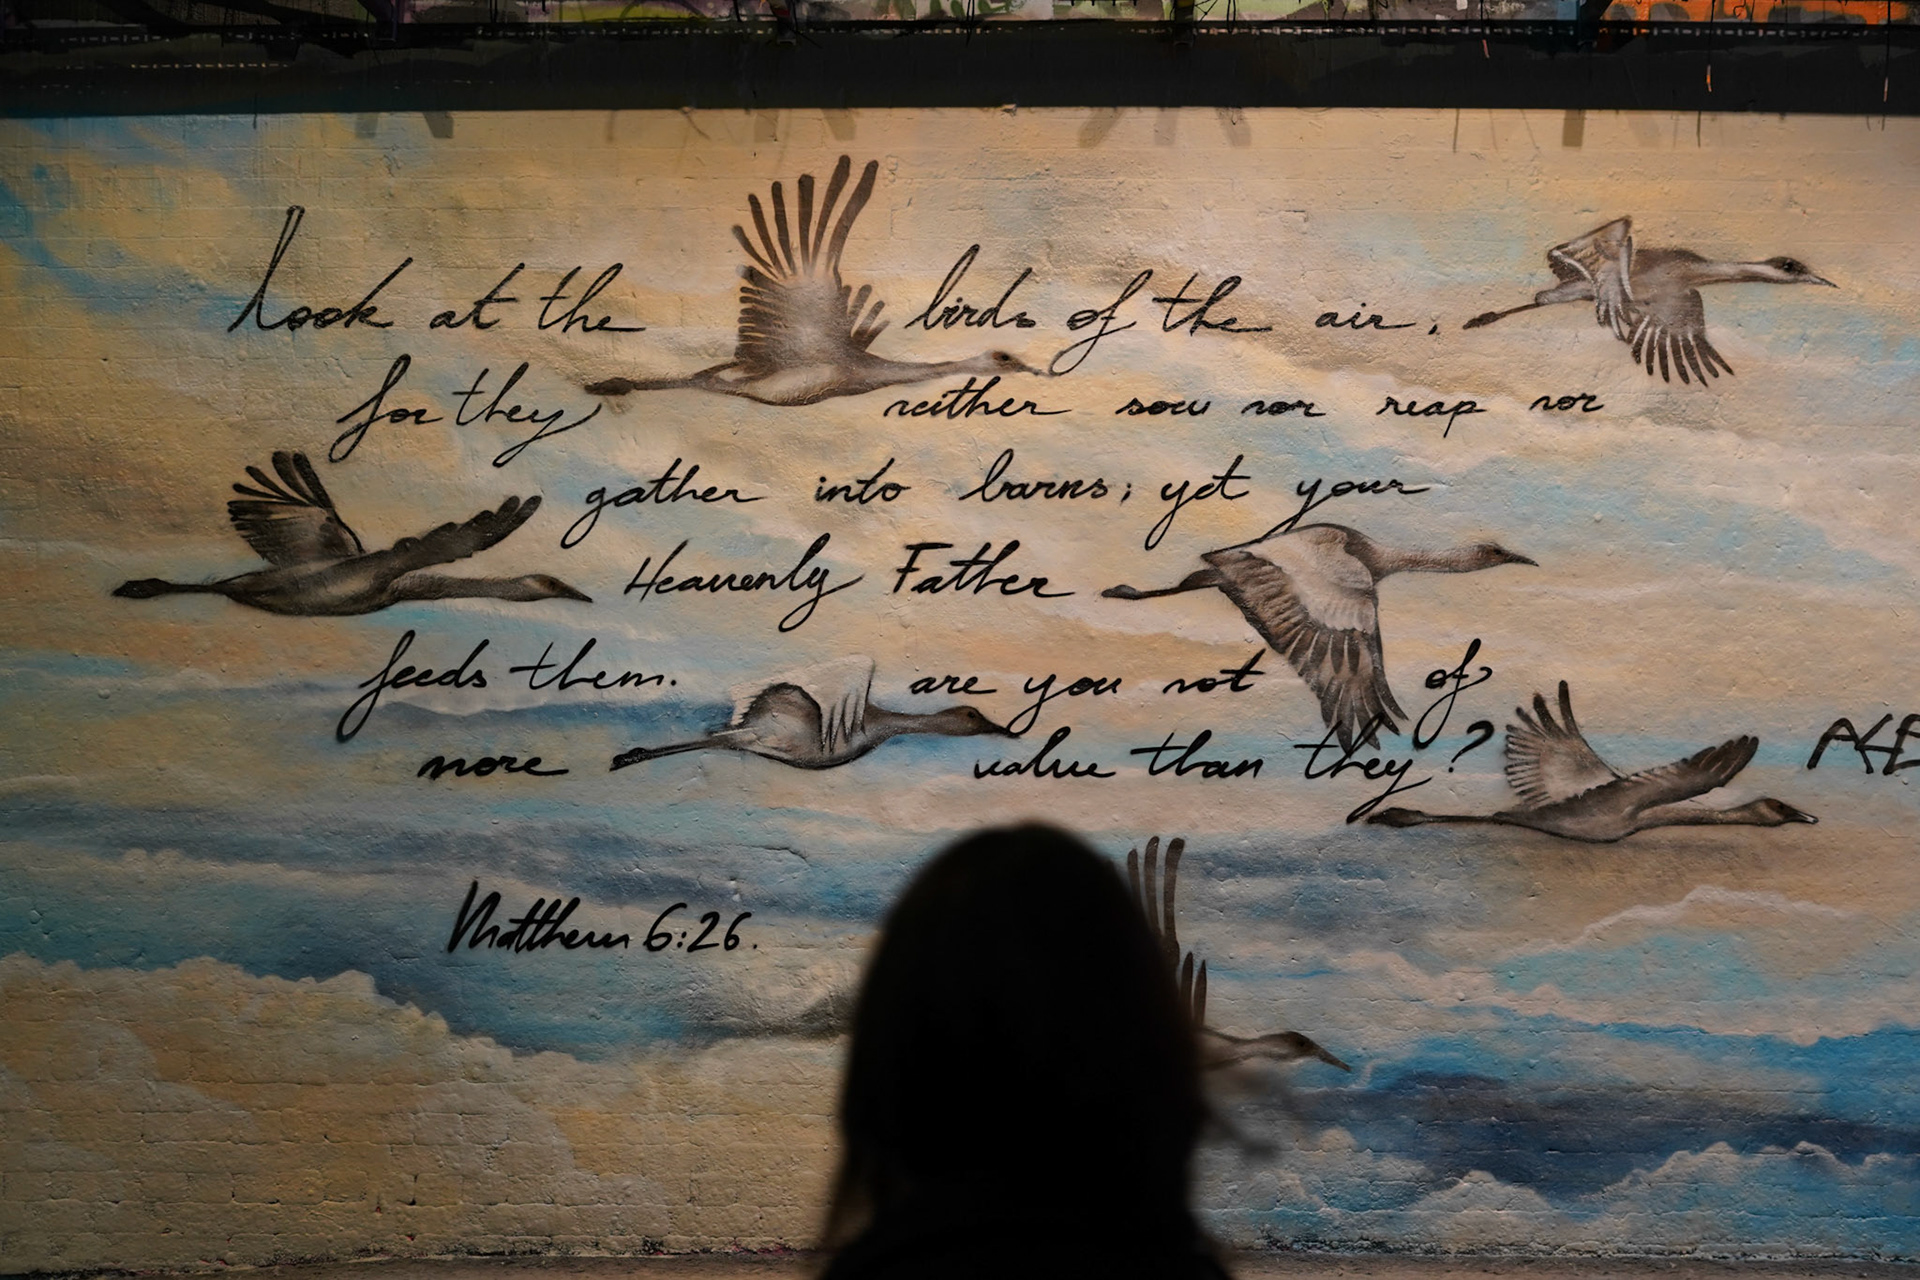 Look at the birds of the air,
for they neither sow nor reap nor
gather into barns; yet your
Heavenly Father
feeds them. are you not of
more value than they?
Matthew 6:26.